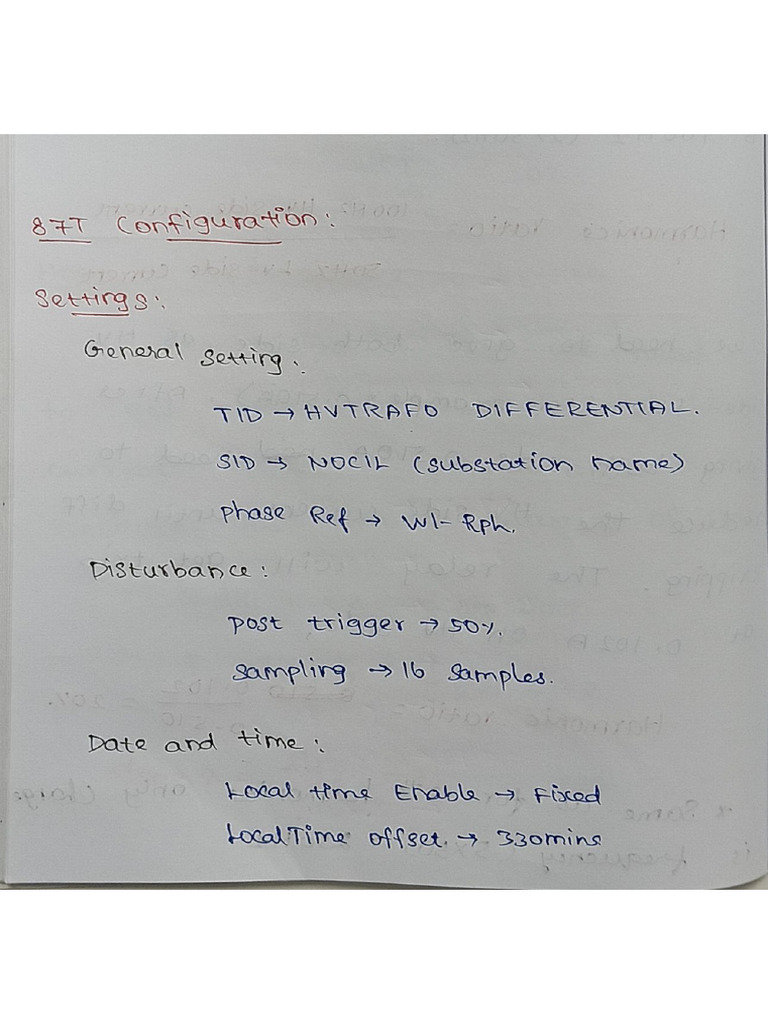 87T Configuration:
Settings:
General Setting:
TID → HVTRAFO DIFFERENTIAL.
SID → NOCIL (Substation name)
Phase Ref → W1-Rph.
Disturbance:
Post trigger → 50%.
Sampling → 16 Samples.
Date and time:
Local time Enable → Fixed
Local Time offset → 330mins